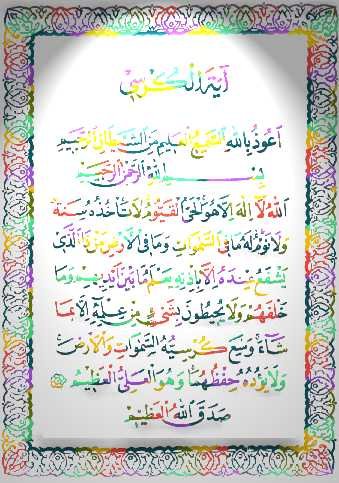 آية الكرسي
أعوذ بالله السميع العليم من الشيطان الرجيم
بسم الله الرحمن الرحيم
الله لا إله إلا هو الحي القيوم لا تأخذه سنة
ولا نوم له ما في السموات وما في الأرض من ذا الذي
يشفع عنده إلا بإذنه يعلم ما بين أيديهم وما
خلفهم ولا يحيطون بشيء من علمه إلا بما
شاء وسع كرسيه السموات والأرض
ولا يؤده حفظهما وهو العلي العظيم
صدق الله العظيم